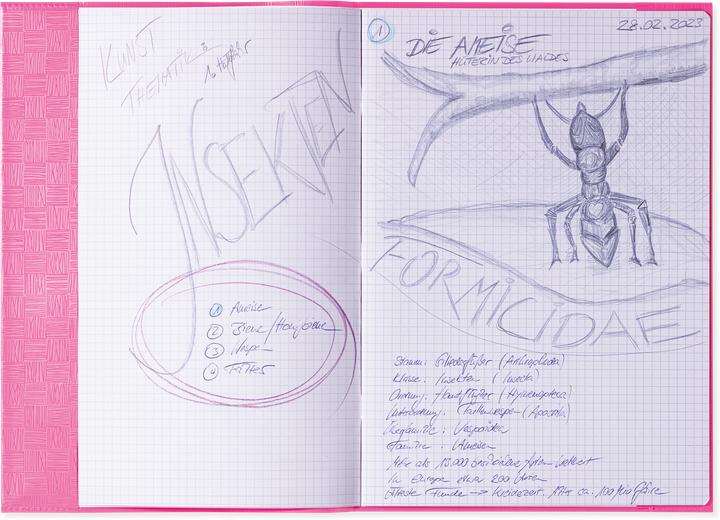 KUNST
THEMATIK 3
1. Halbjahr
INSEKTEN
1 Ameise
2 Biene/Honigbiene
3 Wespe
4 Falter
1
28.02.2023
DIE AMEISE
HÜTERIN DES WALDES
FORMICIDAE
Stamm: Gliederfüßer (Arthropoda)
Klasse: Insekten (Insecta)
Ordnung: Hautflügler (Hymenoptera)
Unterordnung: Taillenwespen (Apocrita)
Überfamilie: Vespoidea
Familie: Ameisen
Mehr als 13.000 beschriebene Arten weltweit
In Europa etwa 200 Arten
Älteste Funde → Kreidezeit. Alter ca. 100 Mio Jahre